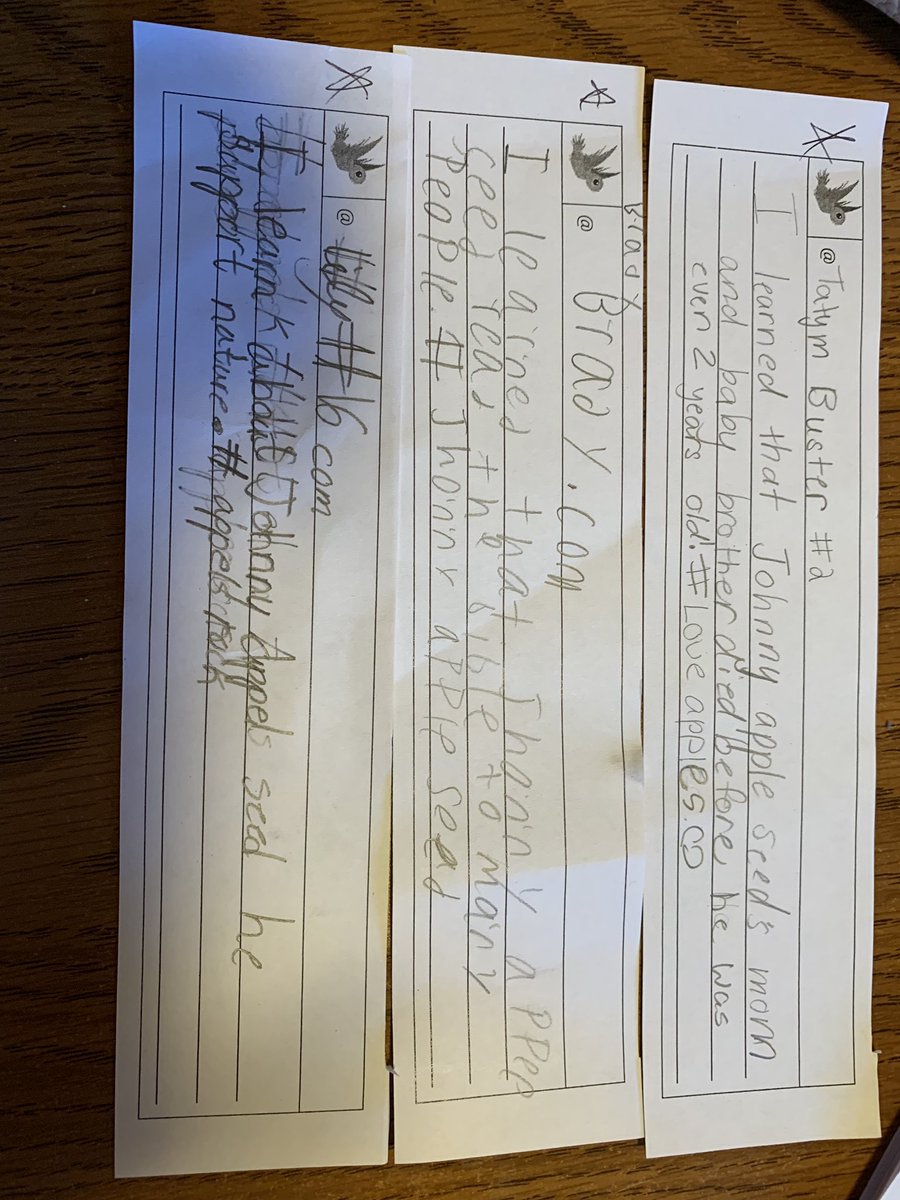 @Tatym Buster #2
I learned that Johnny apple seed's mom
and baby brother died before he was
even 2 years old! #Love apples.
Brady
@ Brady.com
I lear'ned that Jhonny
seed read the bible to many
people. # Jhonny apple seed
@ #16 com
Johnny Appels sed he
support nature. #appelsrock